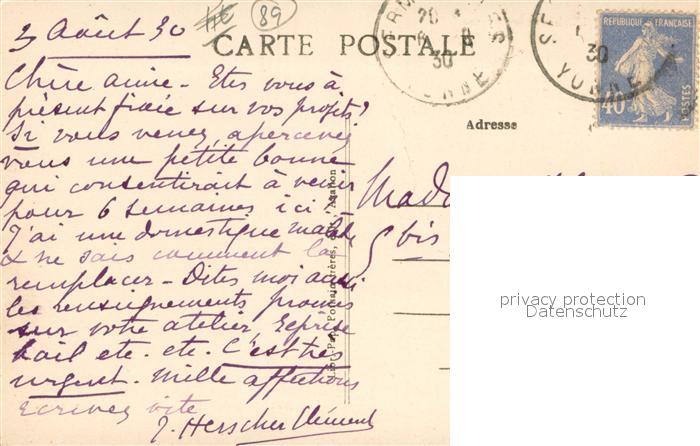 3 Août 30
89
CARTE POSTALE
Adresse
REPUBLIQUE FRANÇAISE
40
POSTES
YONNE
30
YONNE
30
Chère amie - Etes vous à
présent fixée sur vos projets?
Si vous venez, apercevez
vous une petite bonne
qui consentirait à venir
pour 6 semaines ici.
J'ai une domestique malade
& ne sais comment la
remplacer - Dites moi aussi
les renseignements promis
sur votre atelier,
bail etc. etc. C'est très
urgent. Mille affections
Ecrivez vite
J. Herscher Clément
Mada
5 bis
privacy protection
Datenschutz